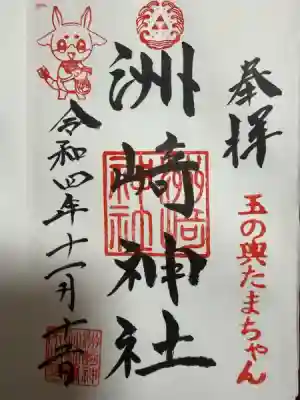 奉拝
玉の輿たまちゃん
洲崎神社
令和四年十一月十一日